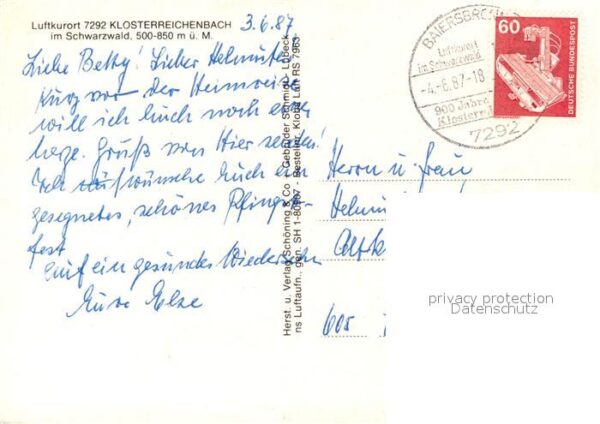 Luftkurort 7292 KLOSTERREICHENBACH
im Schwarzwald, 500-850 m ü. M.
3.6.87
Liebe Betty! Lieber Helmut
Kurz vor der Heimreise
will ich Euch noch einen
Gruß von Hier senden!
Ich wünsche Euch ein
gesegnetes, schönes Pfingst-
fest
Auf ein gesundes Wiedersehn
Eure Else
Herst. u. Verlag Schöning & Co - Gebrüder Schmidt - Lübeck
ns Luftaufn., gen. SH 1-80907 - Bestellnr. Kloba Luft RS 7963
BAIERSBRONN
Luftkurort
im Schwarzwald
-4-6.87-18
900 Jahre
7292
60
DEUTSCHE BUNDESPOST
Herrn u. Frau,
Helmu
Altk
privacy protection
Datenschutz